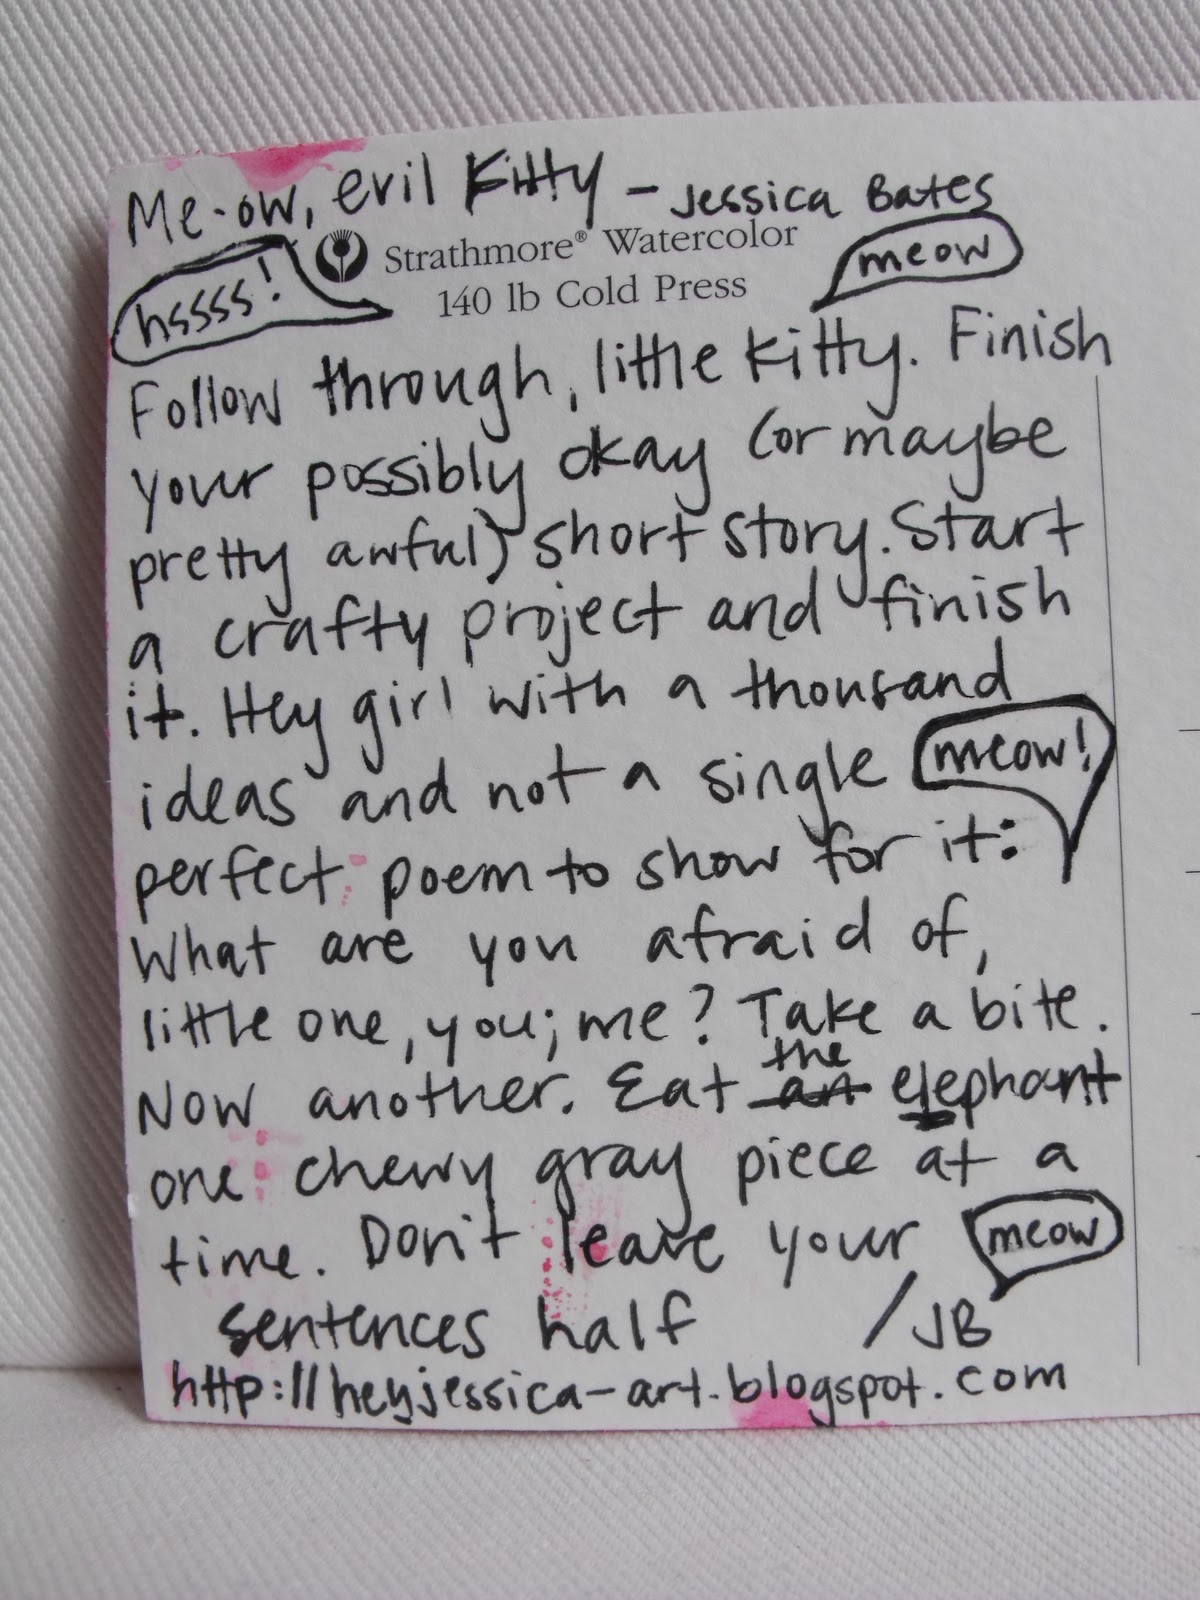 Me-ow, evil Kitty - Jessica Bates
hssss!
Strathmore® Watercolor
140 lb Cold Press
meow
Follow through, little kitty. Finish
your possibly okay (or maybe
pretty awful) short story. Start
a crafty project and finish
it. Hey girl with a thousand
ideas and not a single
meow!
perfect poem to show for it:
What are you afraid of,
little one, you; me? Take a bite.
Now another. Eat an the elephant
one chewy gray piece at a
time. Don't leave your
meow
sentences half /JB
http://heyjessica-art.blogspot.com